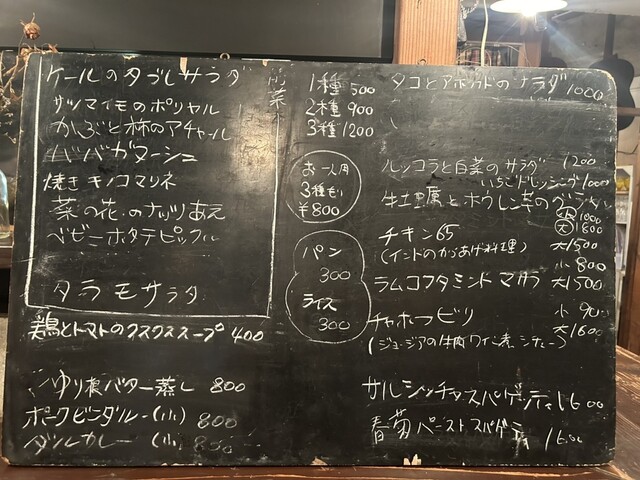 ケールのタブレサラダ
サツマイモのポリヤル
かぶと柿のアチャール
ババガヌーシュ
焼きキノコマリネ
菜の花のナッツあえ
ベビーホタテピックル
タラモサラダ
鶏とトマトのクスクススープ 400
ゆり根バター蒸し 800
ポークビンダルー(小) 800
ダルカレー(小) 800
菜
1種 500
2種 900
3種 1200
お一人用
3種もり
¥800
パン
300
ライス
300
タコとアボカドのサラダ 1000
ルッコラと白菜のサラダ 1200
いちごドレッシング 1000
牛豆腐とホウレン草の
小 1000
大 1800
チキン65 大1500
(インドのからあげ料理) 小 800
ラムコフタミント 大1500
チャホービリ 小 900
大1600
(ジョージアの牛肉ワイン煮シチュー)
サルシッチャスパゲッティ 1600
春菊ペーストスパゲティ 1600